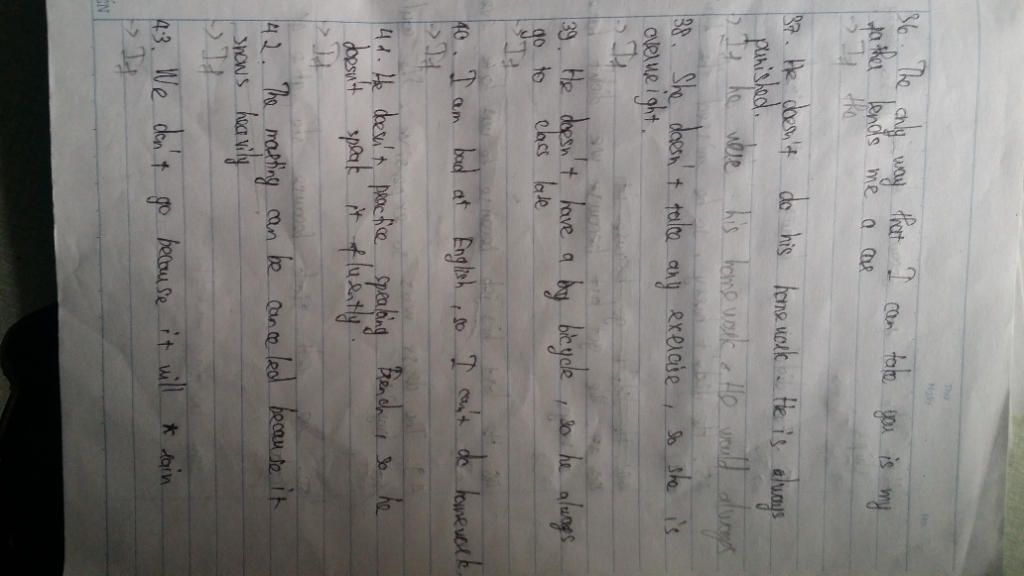 36. The only way that I can take you is my
father lends me a car
-> If the
37. He doesn't do his homework. He is always
punished.
-> If he were his homework. He would always
38. She doesn't take any exercise, so she is
overweight.
-> If
39. He doesn't have a by bicycle, so he always
go to class late
-> If
40. I am bad at English, so I can't do homework.
-> If
41. He doesn't practice speaking French, so he
doesn't speak it fluently.
-> If
42. The meeting can be canceled because it
snows heavily
-> If
43. We don't go because it will * rain
-> If